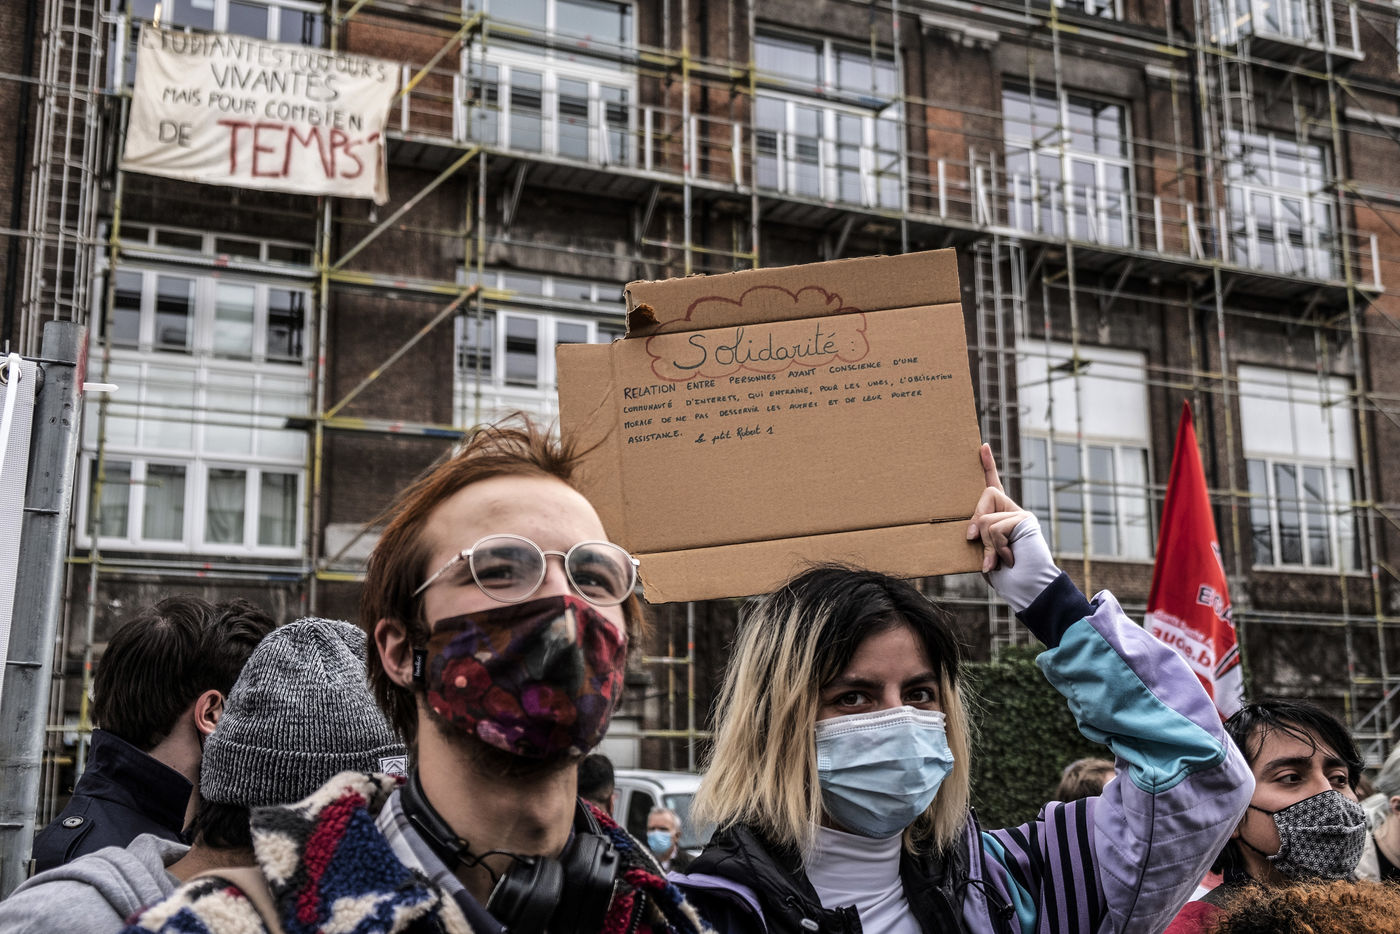 ETUDIANTES TOUJOURS
VIVANTES
MAIS POUR COMBIEN
DE TEMPS?
Solidarité :
RELATION ENTRE PERSONNES AYANT CONSCIENCE D'UNE
COMMUNAUTÉ D'INTERETS, QUI ENTRAINE, POUR LES UNES, L'OBLIGATION
MORALE DE NE PAS DESSERVIR LES AUTRES ET DE LEUR PORTER
ASSISTANCE. Le p'tit Robert 1